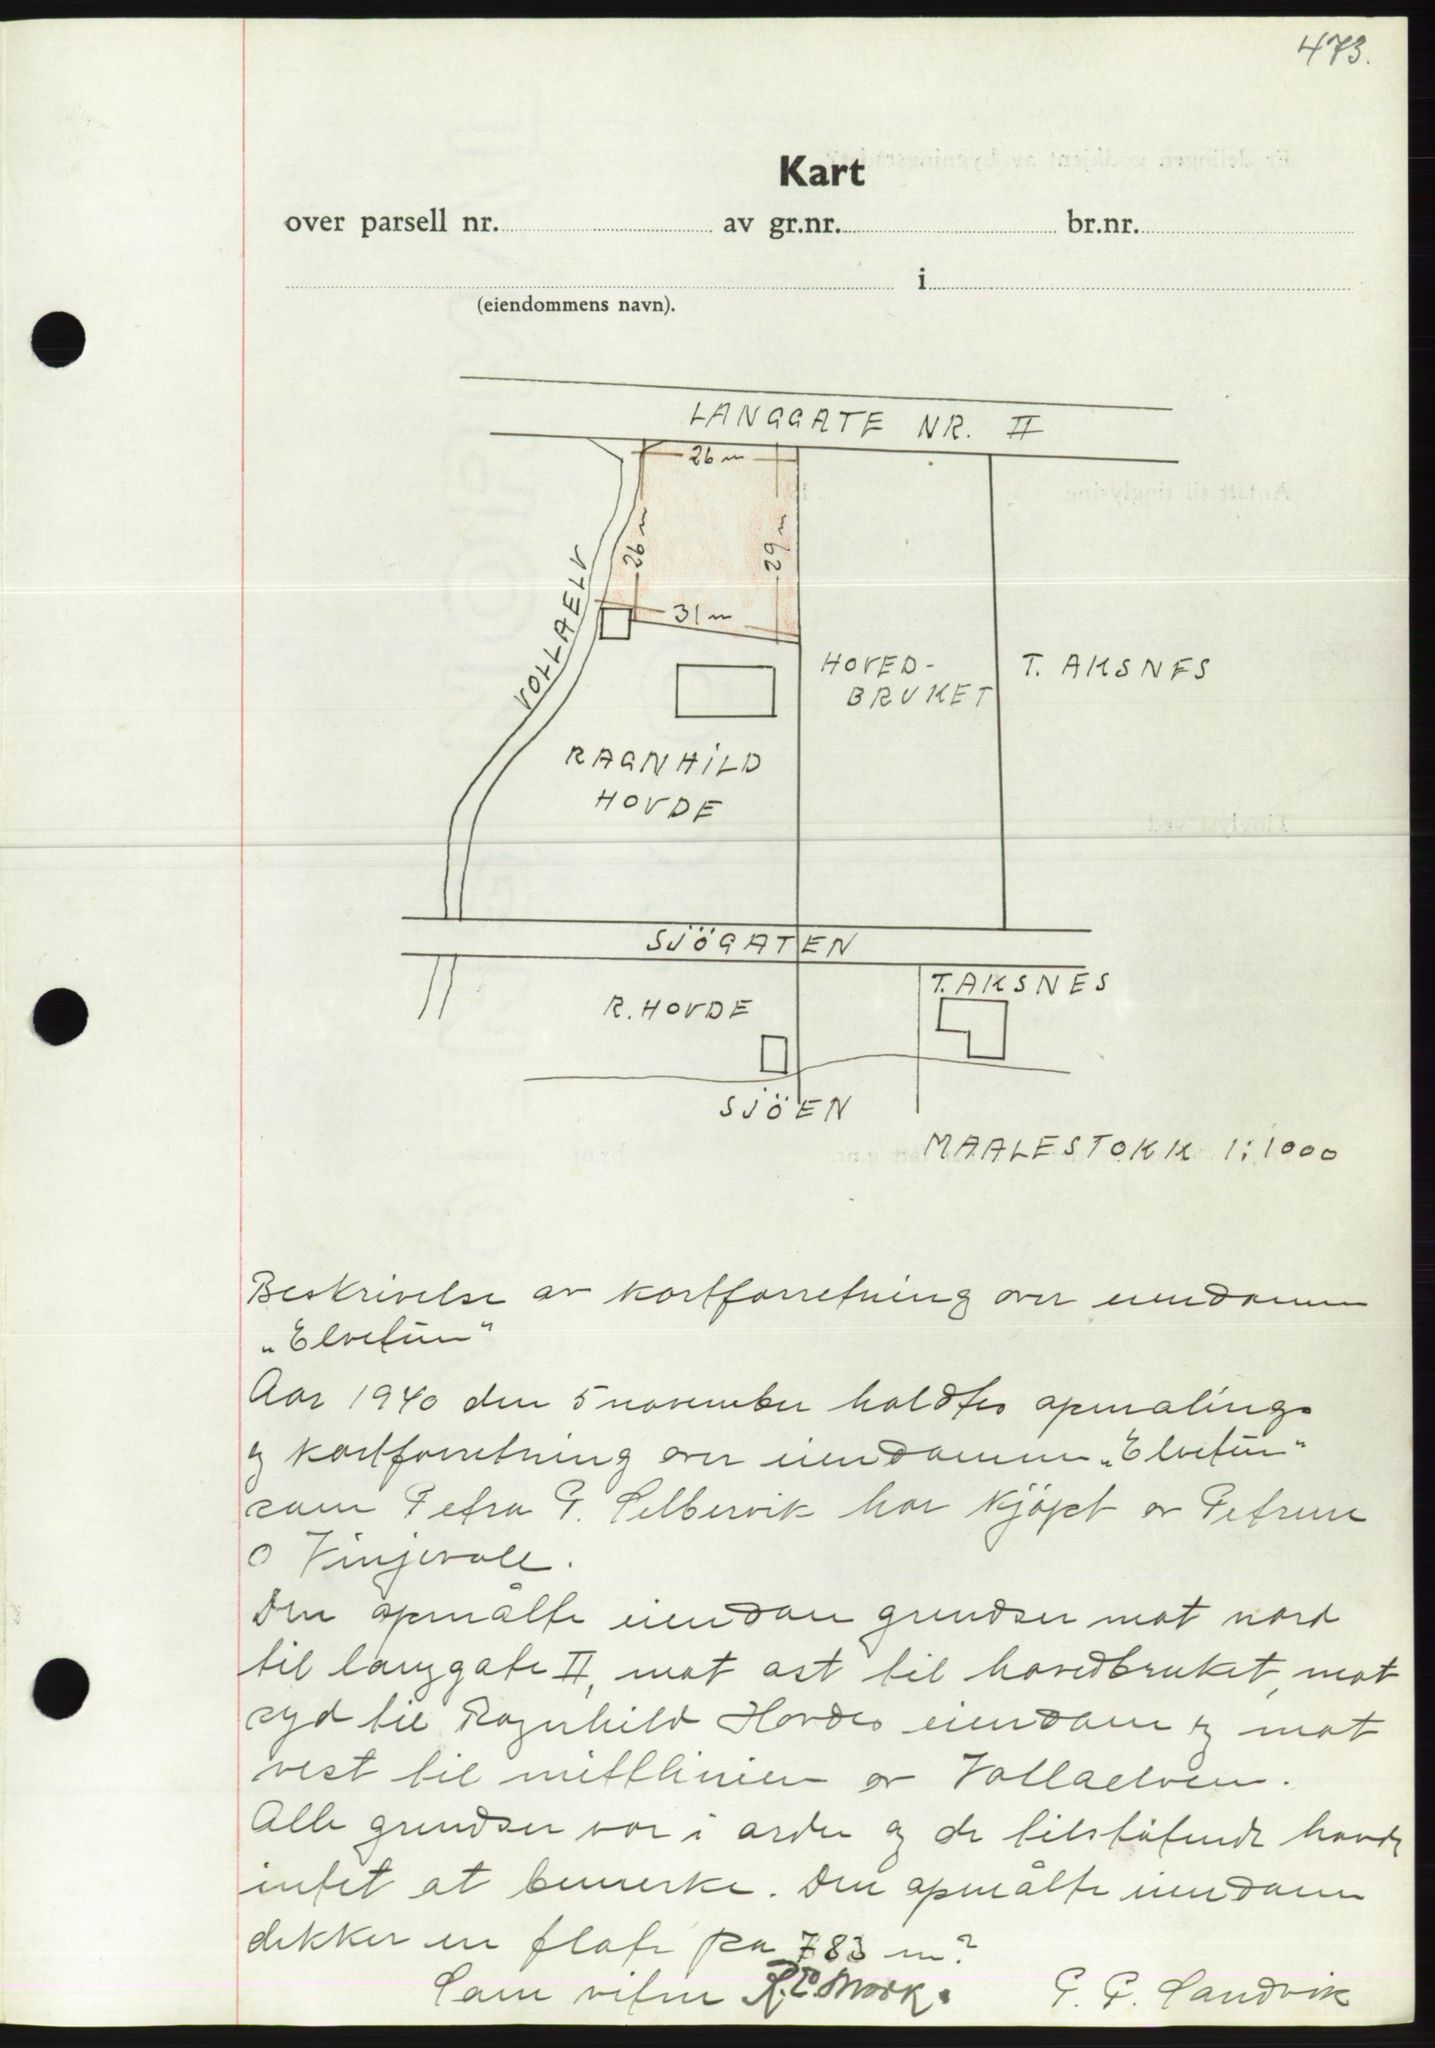 473.
Kart
over parsell nr. av gr.nr. br.nr.
i
(eiendommens navn).
LANGGATE NR. II
26 m
26 m
29 m
31 m
VOLLAELV
HOVED-
BRUKET
T. AKSNES
RAGNHILD
HOVDE
SJÖGATEN
T. AKSNES
R. HOVDE
SJÖEN
MAALESTOKK 1:1000
Beskrivelse av kartforretning over eiendommen
„Elvetun"
Aar 1940 den 5 november holdtes opmalings
og kartforretning over eiendommen „Elvetun"
som Petra P. Selbervik har kjöpt av Petrine
O Vinjevoll.
Den opmålte eiendom grendser mot nord
til langgate II, mot ost til hovedbruket, mot
syd til Ragnhild Hovdes eiendom og mot
vest til mittlinien av Vollaelven.
Alle grendser var i orden og de tilstötende havde
intet at bemerke. Den opmålte eiendom
dekker en flate pa 783 m²
Som vitne P. P. Sandvik